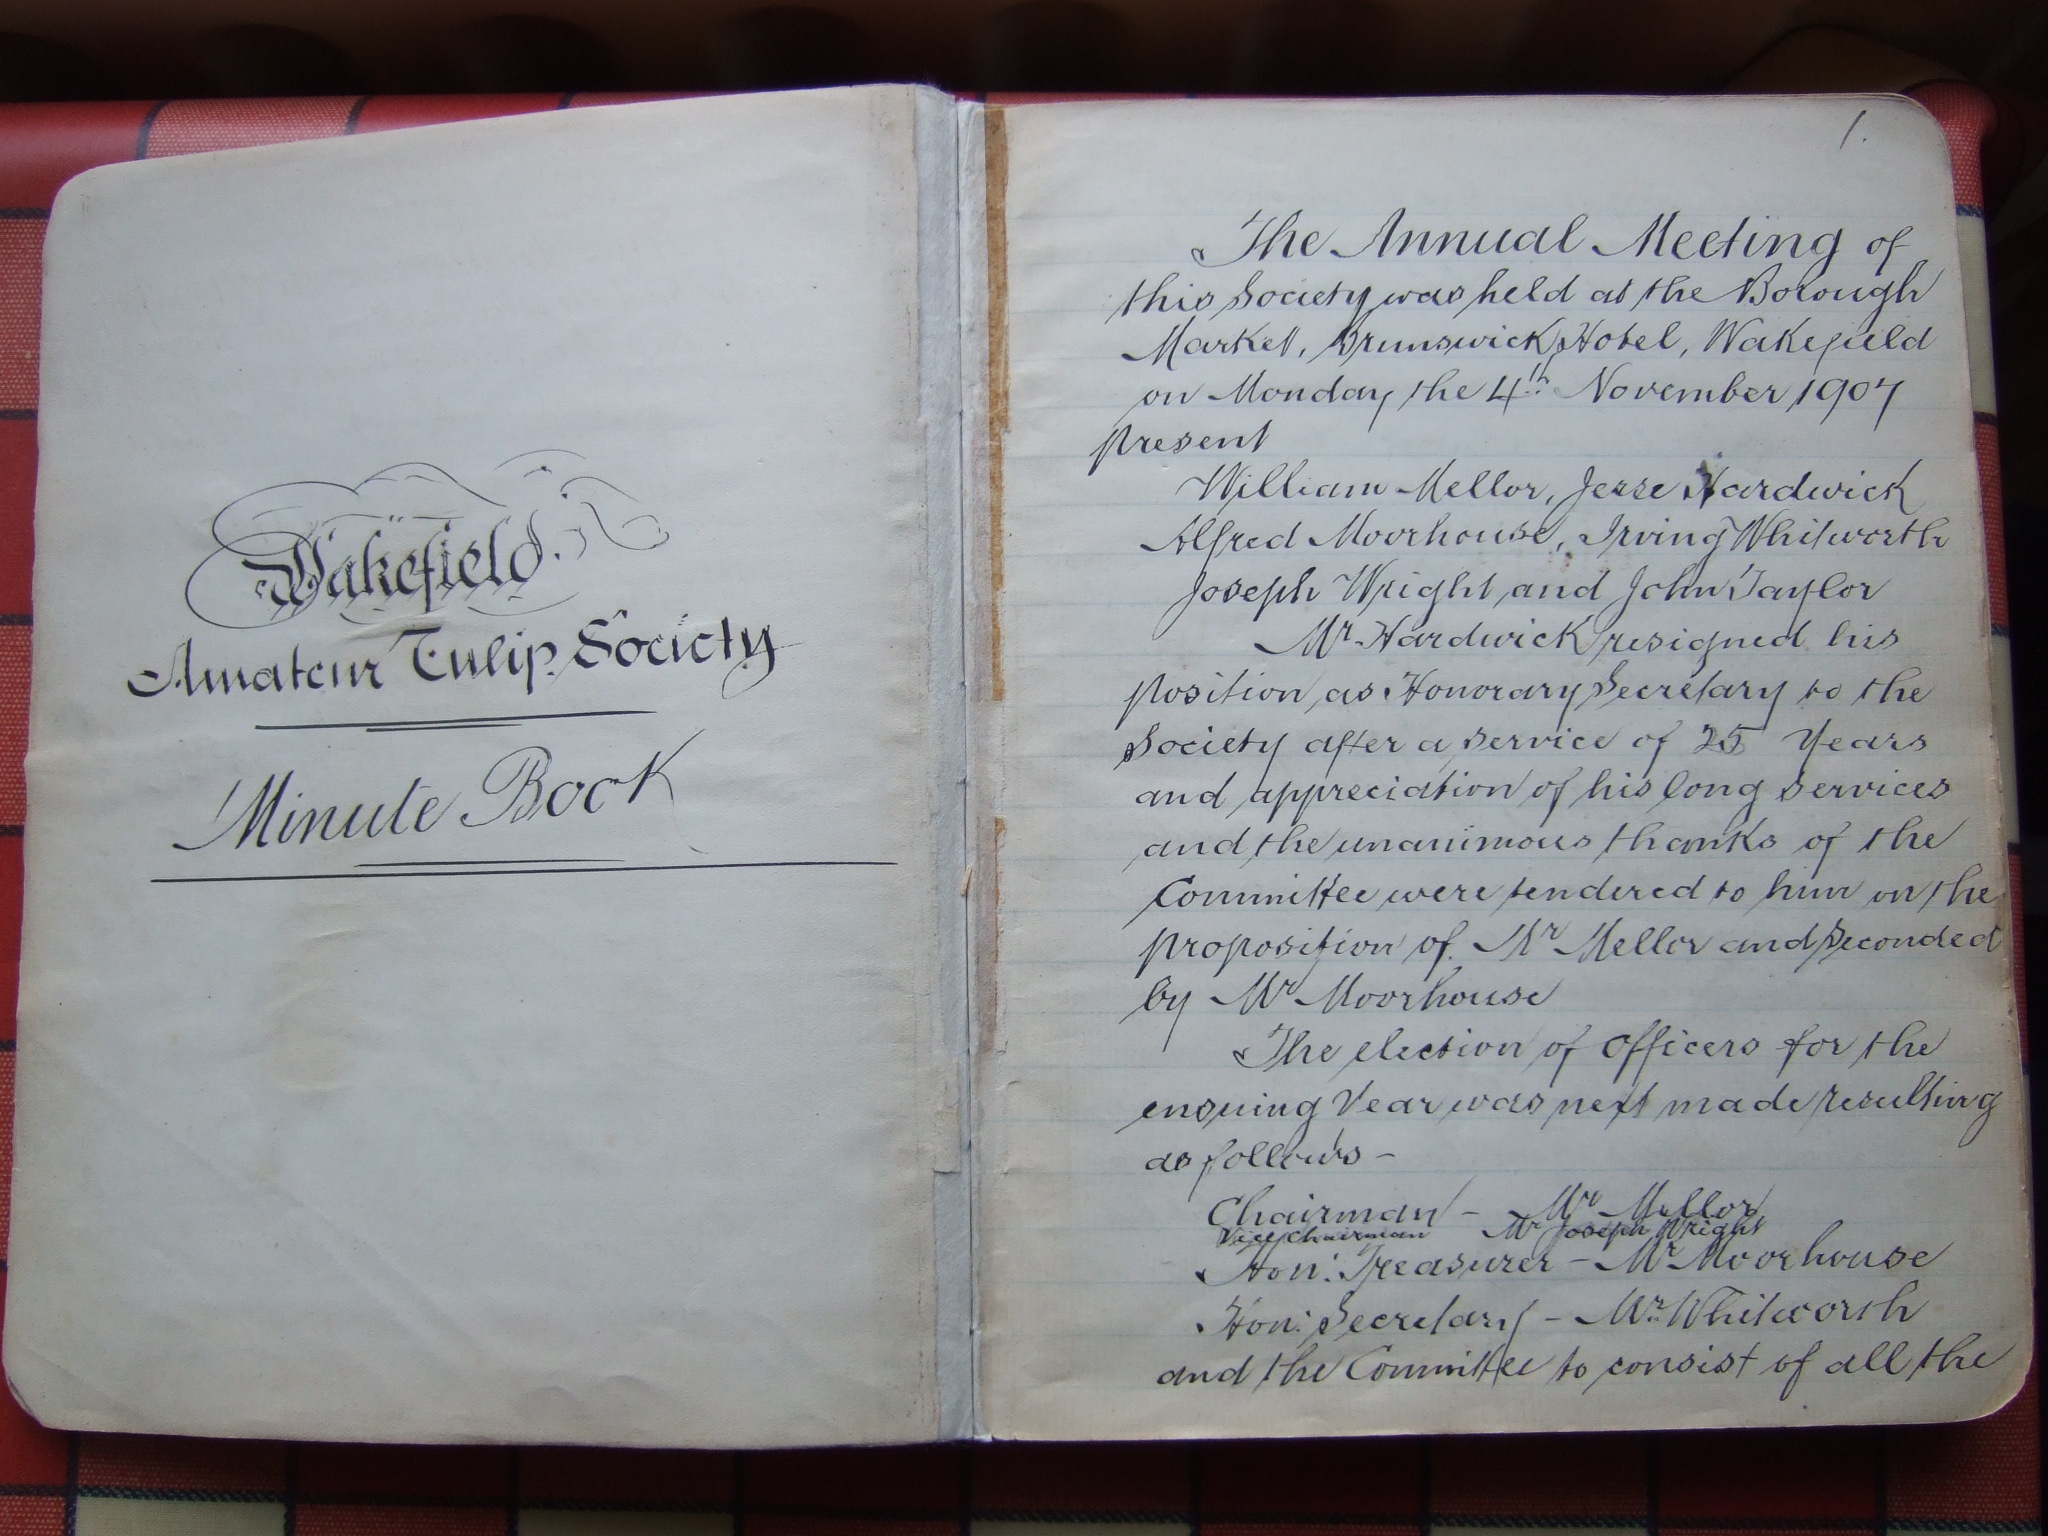 Wakefield
Amateur Tulip Society
Minute Book
1.
The Annual Meeting of
this Society was held at the Borough
Market, Brunswick Hotel, Wakefield
on Monday the 4th November 1907
present
William Mellor, Jesse Hardwick
Alfred Moorhouse, Irving Whitworth
Joseph Wright and John Taylor
Mr Hardwick resigned his
position as Honorary Secretary to the
Society after a service of 25 Years
and appreciation of his long services
and the unanimous thanks of the
Committee were tendered to him on the
proposition of Mr Mellor and seconded
by Mr Moorhouse
The election of Officers for the
ensuing Year was next made resulting
as follows -
Chairman - Mr Mellor
Vice Chairman Mr Joseph Wright
Hon: Treasurer - Mr Moorhouse
Hon: Secretary - Mr Whitworth
and the Committee to consist of all the